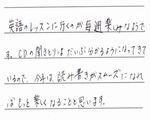 英語のレッスンに行くのが毎週楽しみなようで
す。CDの聞きとりはだいぶ分かるようになってきて
いるので、今年は読み書きがスムーズになれ
ばもっと楽しくなることと思います。